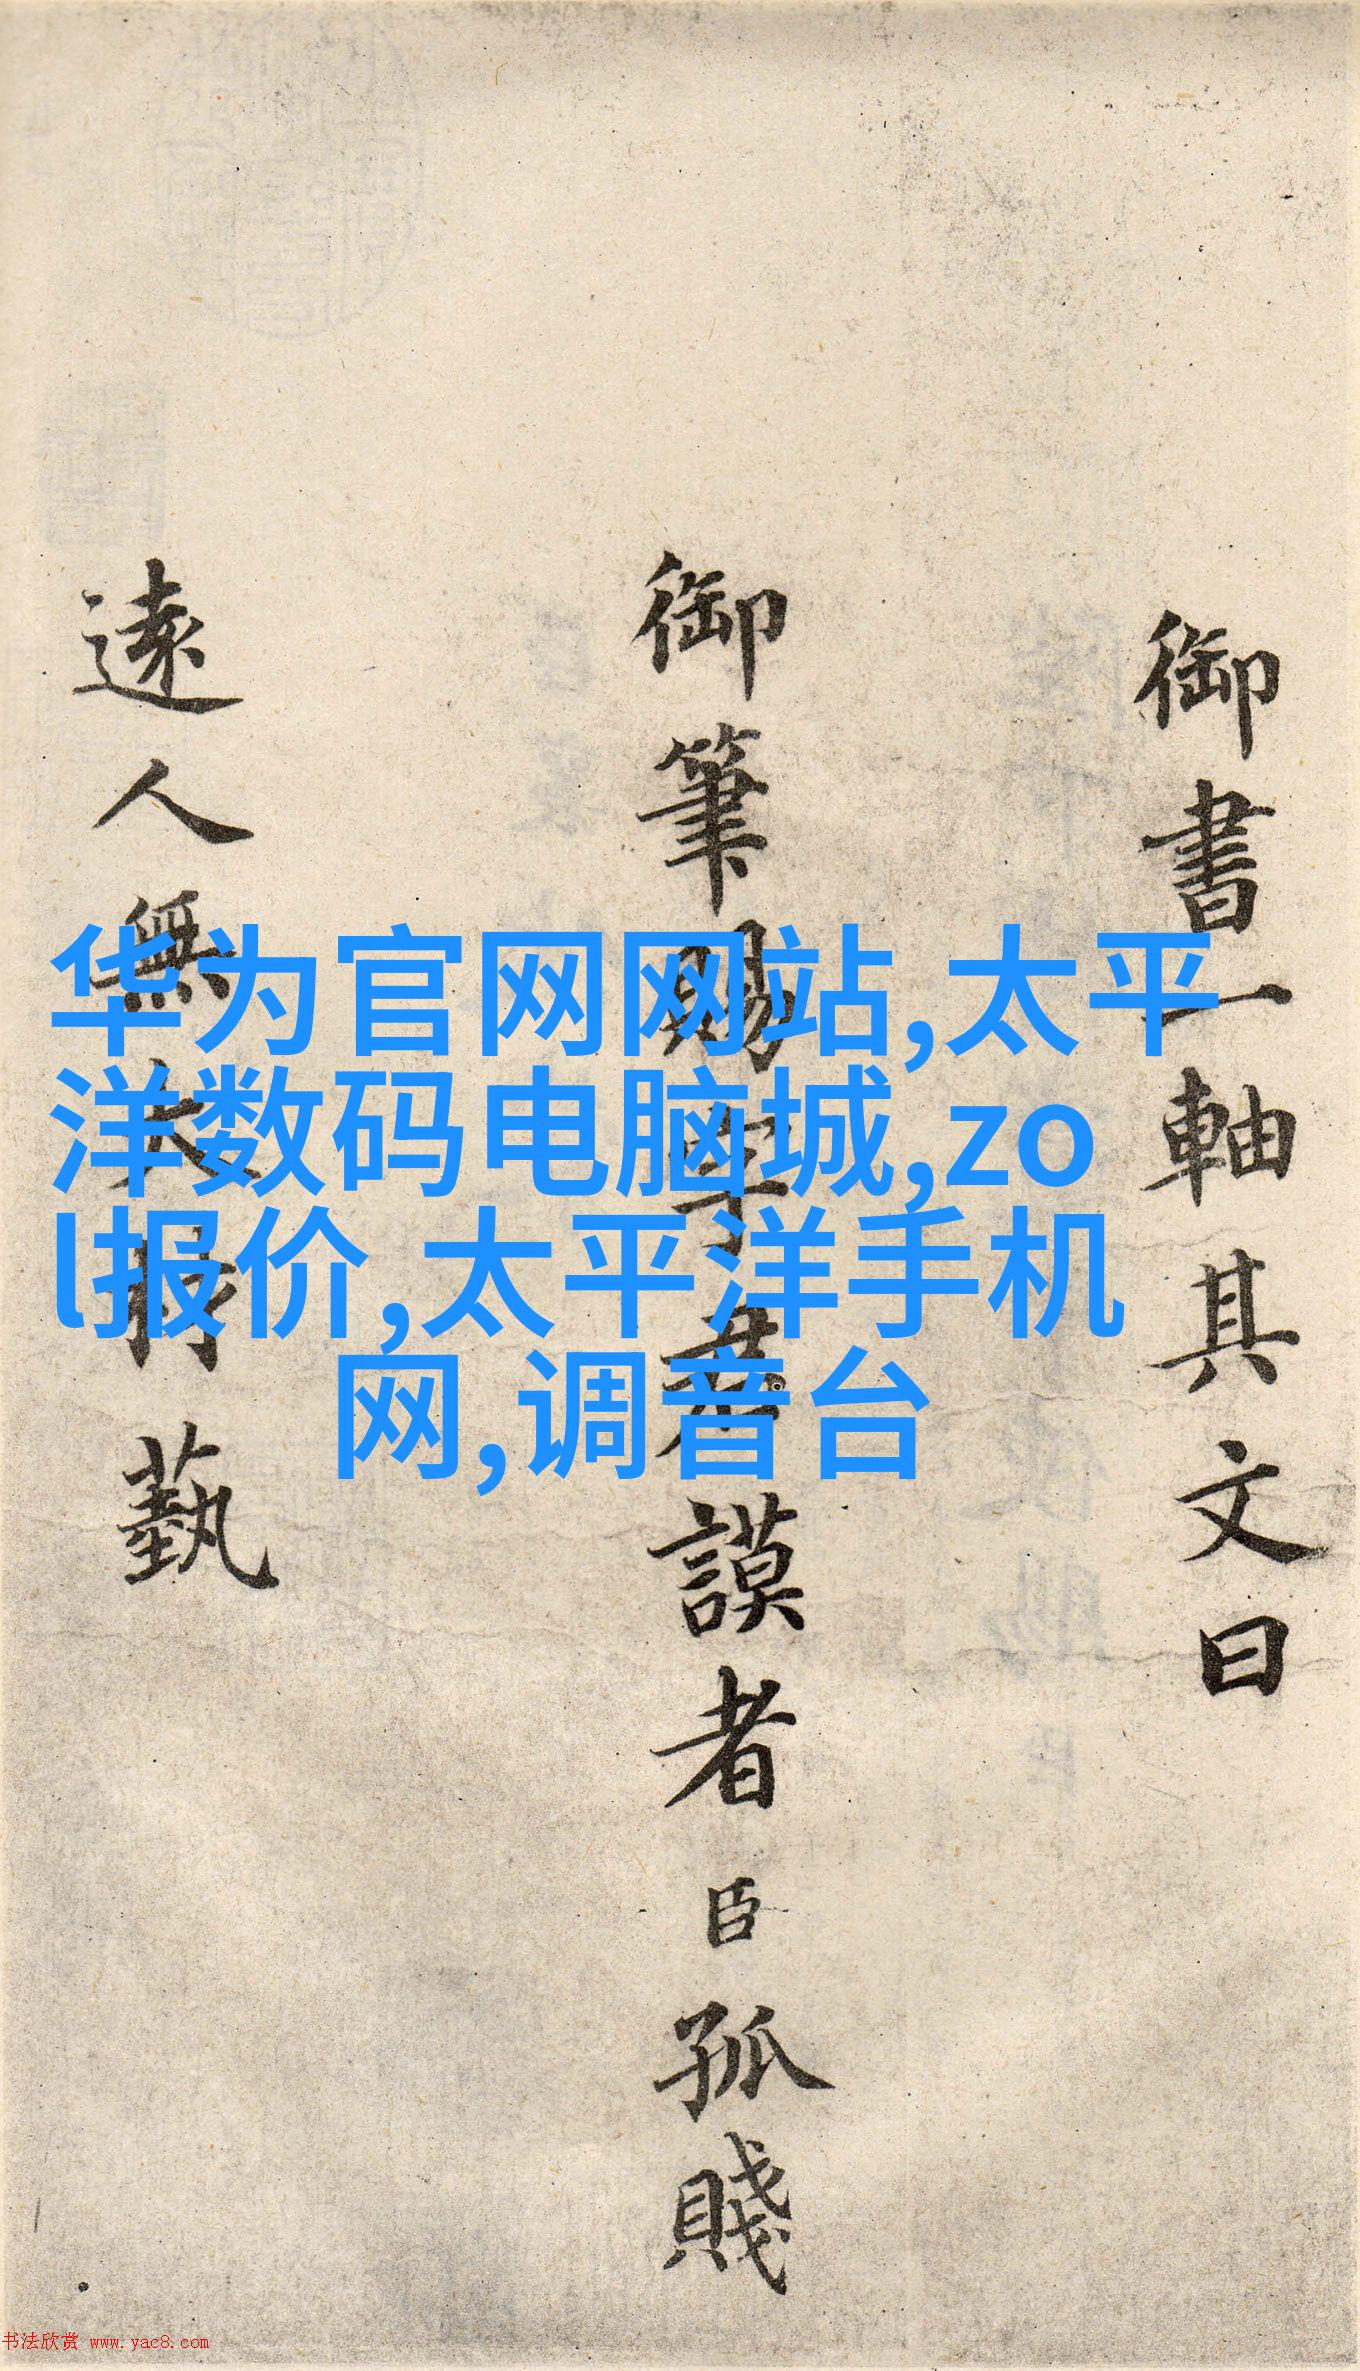 御書一軸其文曰
御筆賜字君謨者臣孤賤
遠人無大材藝
华为官网网站,太平
洋数码电脑城,zo
l报价,太平洋手机
网,调音台
书法欣赏 www.yac8.com